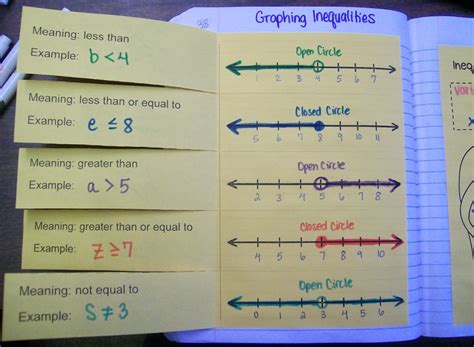 38
Graphing Inequalities
Meaning: less than
Example: b < 4
Open Circle
1 2 3 4 5 6 7
Meaning: less than or equal to
Example: e ≤ 8
Closed Circle
5 6 7 8 9 10 11
Meaning: greater than
Example: a > 5
Open Circle
2 3 4 5 6 7 8
Meaning: greater than or equal to
Example: z ≥ 7
Closed Circle
4 5 6 7 8 9 10
Meaning: not equal to
Example: S ≠ 3
Open Circle
0 1 2 3 4 5 6
Ineq
Vari